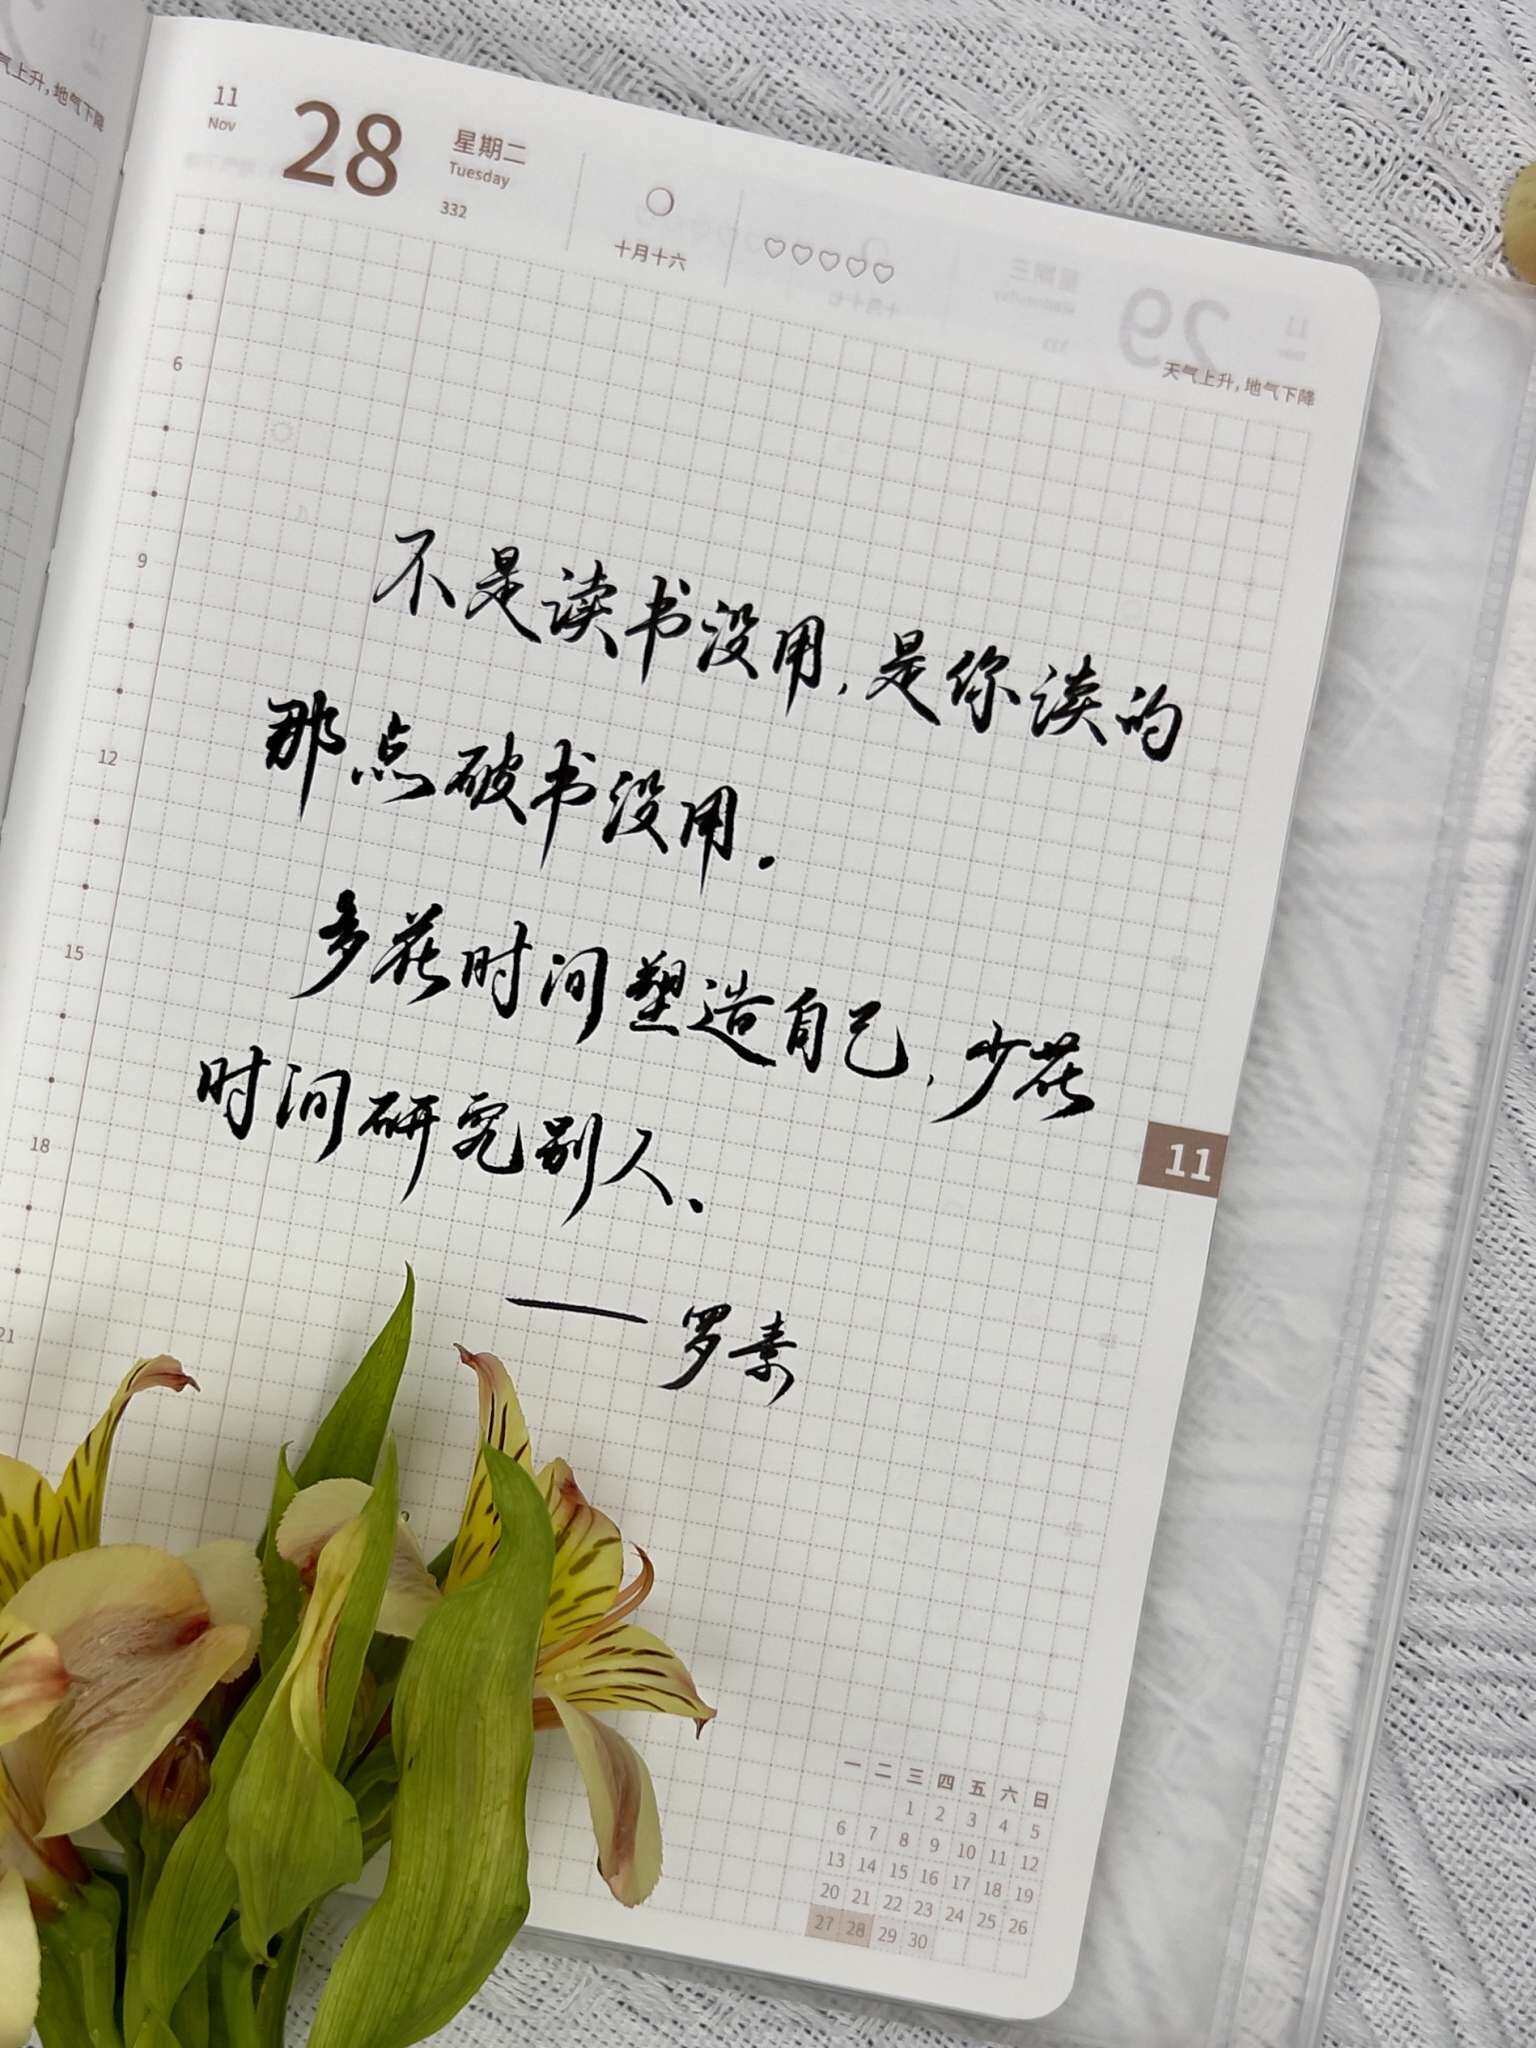 气上升，地气下降
11
Nov
28
星期二
Tuesday
332
十月十六
天气上升，地气下降
6
9
12
15
18
21
不是读书没用，是你读的
那点破书没用.
多花时间塑造自己，少花
时间研究别人、
——罗素
11
一 二 三 四 五 六 日
1 2 3 4 5
6 7 8 9 10 11 12
13 14 15 16 17 18 19
20 21 22 23 24 25 26
27 28 29 30